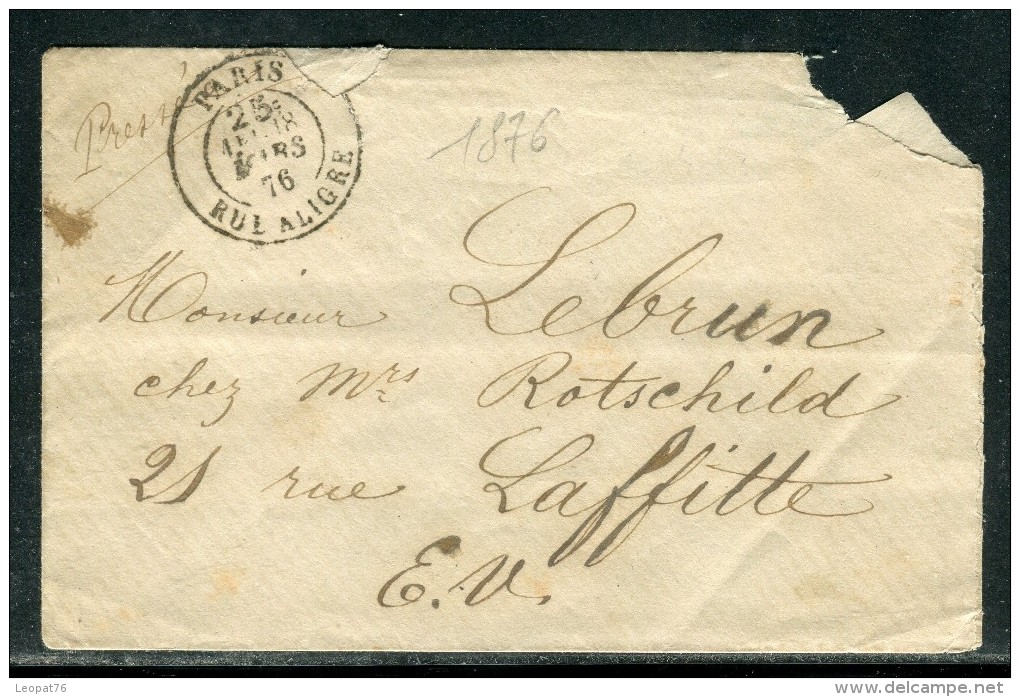 PARIS
25
MARS
76
RUE ALIGRE
Pressé
1876
Monsieur Lebrun
chez Mrs Rotschild
21 rue Laffitte
E.V.
Leopat76
www.delcampe.net